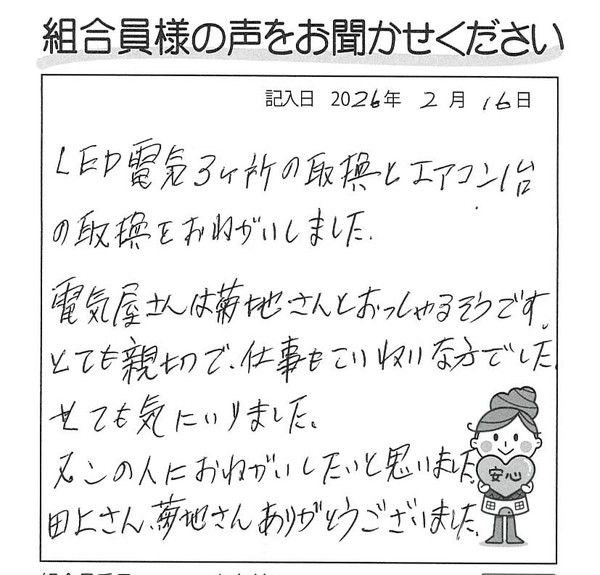 組合員様の声をお聞かせください
記入日 2026年 2月 16日
LED電気3ヶ所の取換とエアコン1台
の取換をおねがいしました.
電気屋さんは菊地さんとおっしゃるそうです。
とても親切で、仕事もていねいな方でした
とても気にいりました。
又この人におねがいしたいと思いました
安心
田上さん、菊地さんありがとうございました